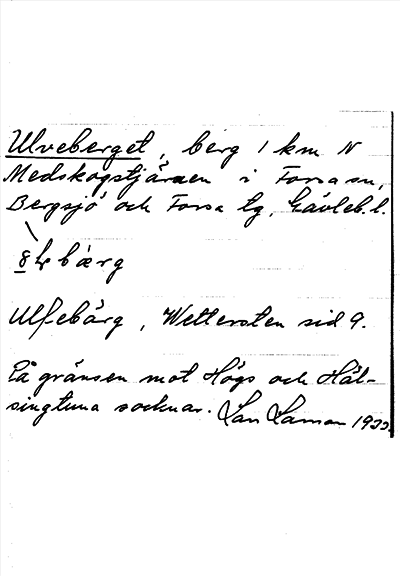 Ulveberget, berg 1 km N
Medskogstjärnen i Forsa sn,
Bergsjö och Forsa tg, Gävleb. l.
Ulfebärg, Wettersten sid 9.
På gränsen mot Högs och Häl-
singtuna socknar. Lars Larsson